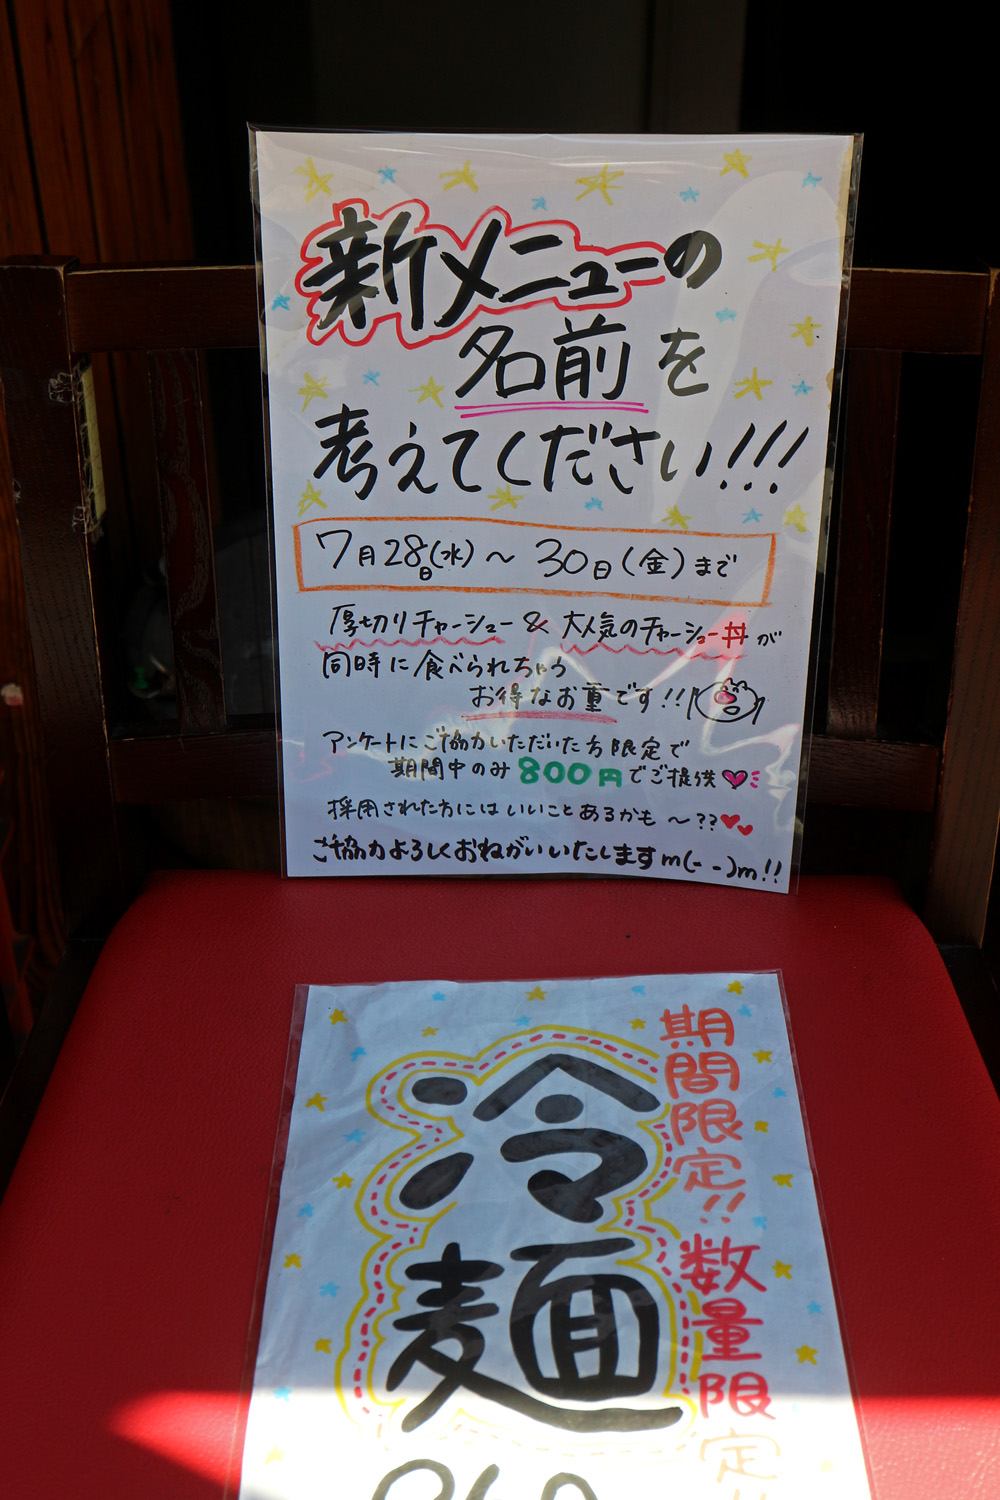 新メニューの
名前を
考えてください!!!
7月28日(水)～30日(金)まで
厚切りチャーシュー&大人気のチャーシュー丼が
同時に食べられちゃう
お得なお重です!!
アンケートにご協力いただいた方限定で
期間中のみ800円でご提供
採用された方にはいいことあるかも～??
ご協力よろしくおねがいいたしますm(--)m!!
期間限定!!数量限定!!
冷麺